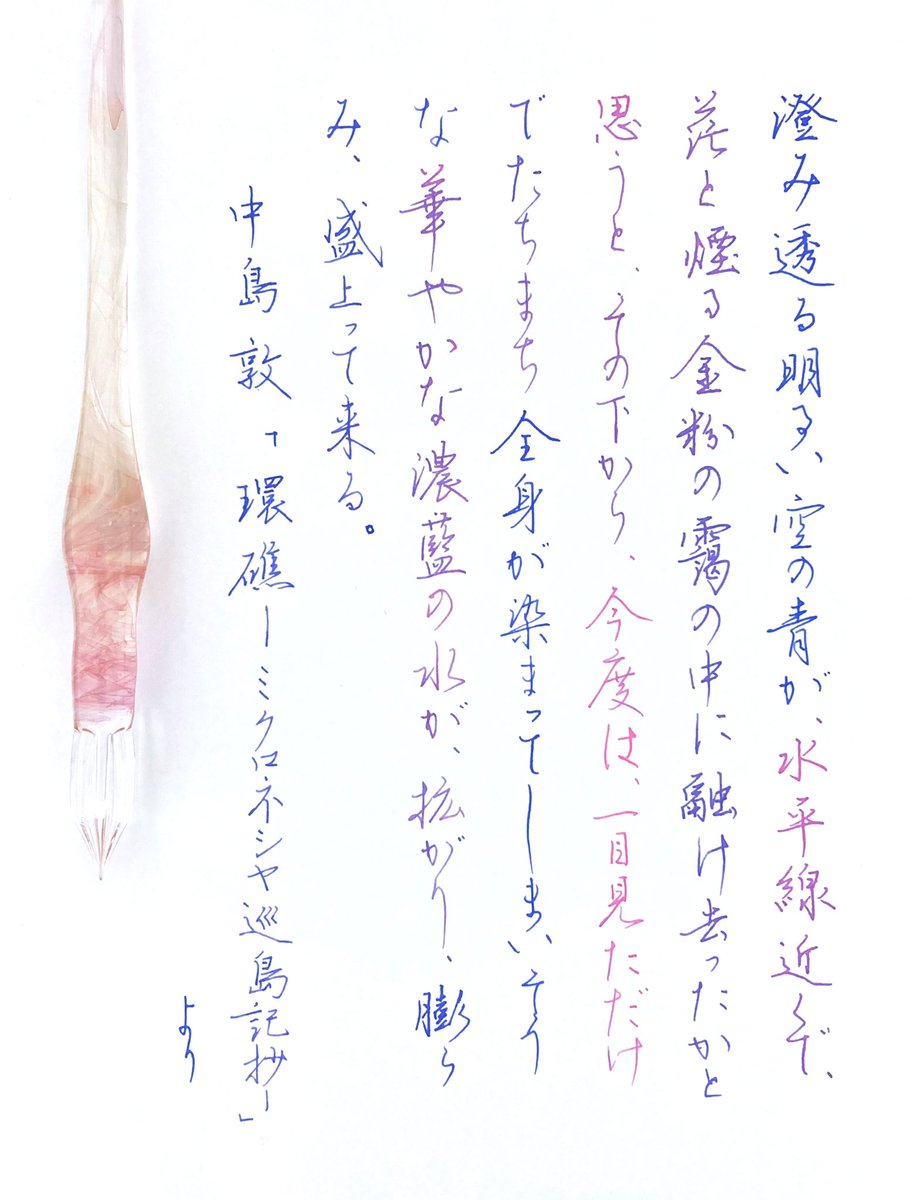 澄み透る明るい空の青が、水平線近くで、
茫と煙る金粉の靄の中に融け去ったかと
思うと、その下から、今度は、一目見ただけ
でたちまち全身が染まってしまいそう
な華やかな濃藍の水が、拡がり、膨ら
み、盛上って来る。
中島敦「環礁ーミクロネシヤ巡島記抄ー」
より